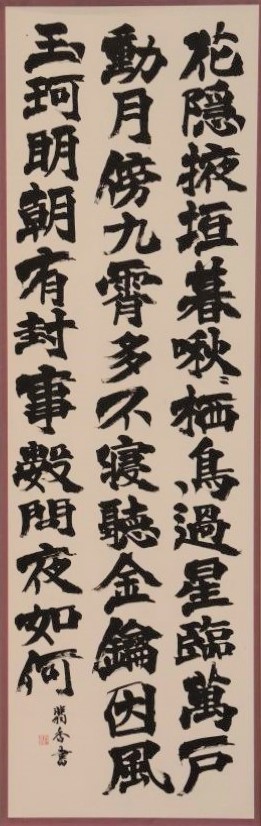 花隠掖垣暮啾〻栖鳥過星臨萬戸
動月傍九霄多不寢聽金鑰因風
玉珂明朝有封事數問夜如何
香書